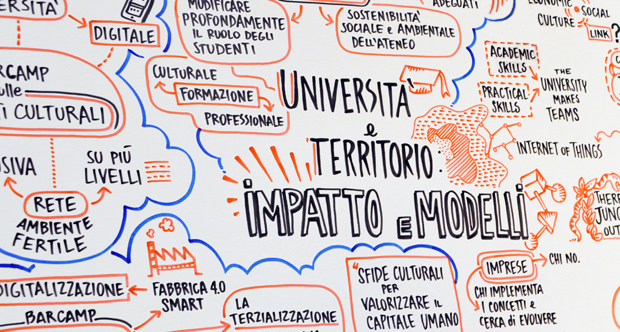 DIGITALE
MODIFICARE
PROFONDAMENTE
IL RUOLO DEGLI
STUDENTI
SOSTENIBILITÀ
SOCIALE e AMBIENTALE
DELL'ATENEO
ADEGUATI
ECONOMIC
CULTURE
SOCIAL
LINK?
ACADEMIC
SKILLS
PRACTICAL
SKILLS
THE
UNIVERSITY
MAKES
TEAMS
INTERNET OF THINGS
CULTURALE
FORMAZIONE
PROFESSIONALE
CULTURALI
UNIVERSITÀ
e
TERRITORIO:
IMPATTO E MODELLI
SU PIÙ
LIVELLI
RETE
AMBIENTE
FERTILE
DIGITALIZZAZIONE
BARCAMP
FABBRICA 4.0
SMART
LA
TERZIALIZZAZIONE
"SFIDE CULTURALI
PER
VALORIZZARE IL
CAPITALE UMANO
IMPRESE
CHI NO.
CHI IMPLEMENTA
I CONCETTI e
CERCA DI EVOLVERE
THERE
OUT